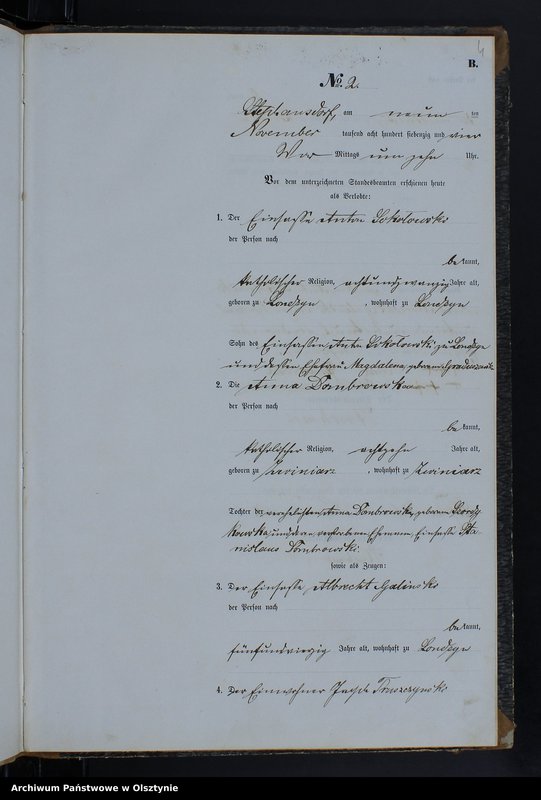 4
B.
No. 2.
Stephansdorf, am neun ten
November tausend acht hundert siebenzig und vier
Vor Mittags um zehn Uhr.
Vor dem unterzeichneten Standesbeamten erschienen heute
als Verlobte:
1. Der Einsasse Anton Sokolowski
der Person nach
bekannt,
katholischer Religion, achtundzwanzig Jahre alt,
geboren zu Londzyn, wohnhaft zu Londzyn
Sohn des Einsassen Anton Sokolowski zu Londzyn
und dessen Ehefrau Magdalena, geborene
2. Die Anna Dombrowska
der Person nach
bekannt,
katholischer Religion, achtzehn Jahre alt,
geboren zu Zwiniarz, wohnhaft zu Zwiniarz
Tochter der Anna Dombrowska, geborene
und deren verstorbenen Ehemann, Einsasse Sta-
nislaus Dombrowski.
sowie als Zeugen:
3. Der Einsasse Albrecht Galinski
der Person nach
bekannt,
fünfundvierzig Jahre alt, wohnhaft zu Londzyn
4. Der Einwohner
Archiwum Państwowe w Olsztynie